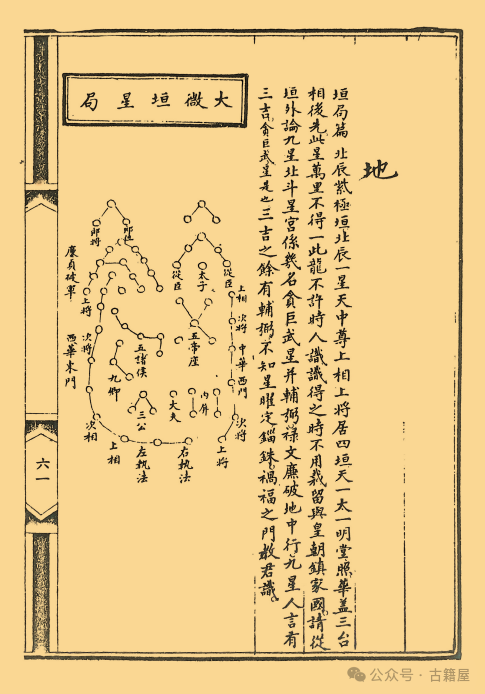 地
垣局篇 北辰紫極垣北辰一星天中尊上相上將居四垣天一太一明堂照華盖三台
相後先此星萬里不得一此龍不許時人識識得之時不用裁留與皇朝鎮家國請從
垣外論九星北斗星宮係幾名貪巨武星并輔弼祿文廉破地中行九星人言有
三吉貪巨武星是也三吉之餘有輔弼不知星曜定錙銖禍福之門教君識
太微垣星局
郎將
郎位
從臣
太子
從臣
上相
次將
中華西門
次將
上將
廉貞破軍
上將
次將
西華東門
次相
上相
左執法
右執法
五諸侯
五帝座
九卿
三公
大夫
内屏
六一
公众号·古籍屋